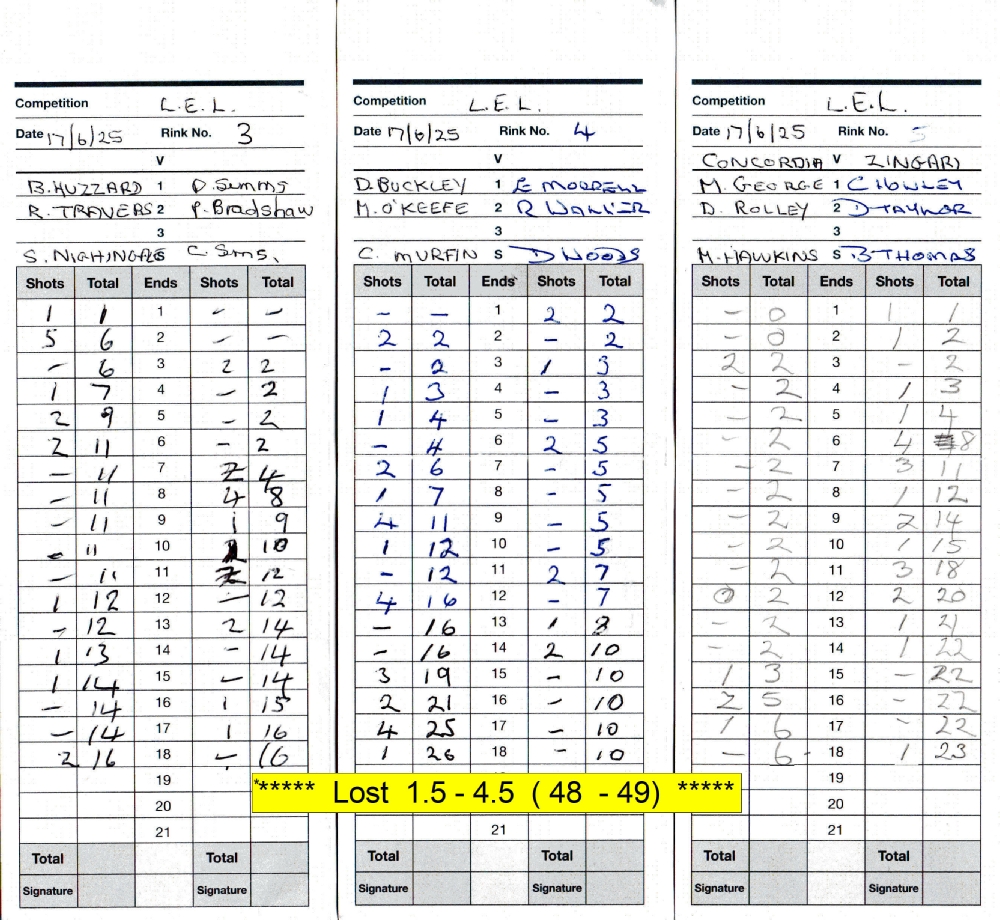 Competition L.E.L.
Date 17/6/25 Rink No. 3
V
B.HUZZARD 1 D.Simms
R.TRAVERS 2 P.Bradshaw
3
S.NIGHINGALE S C.Sims.
Shots Total Ends Shots Total
1 1 1 - -
5 6 2 - -
- 6 3 2 2
1 7 4 - 2
2 9 5 - 2
2 11 6 - 2
- 11 7 2 4
- 11 8 4 8
- 11 9 1 9
- 11 10 1 10
- 11 11 2 12
1 12 12 - 12
- 12 13 2 14
1 13 14 - 14
1 14 15 - 14
- 14 16 1 15
- 14 17 1 16
2 16 18 - 16
19
20
21
Total Total
Signature Signature
Competition L.E.L.
Date 17/6/25 Rink No. 4
V
D.BUCKLEY 1
M.O'KEEFE 2 R
3
C. MURFIN S D WOODS
Shots Total Ends Shots Total
- - 1 2 2
2 2 2 - 2
- 2 3 1 3
1 3 4 - 3
1 4 5 - 3
- 4 6 2 5
2 6 7 - 5
1 7 8 - 5
4 11 9 - 5
1 12 10 - 5
- 12 11 2 7
4 16 12 - 7
- 16 13 1 8
- 16 14 2 10
3 19 15 - 10
2 21 16 - 10
4 25 17 - 10
1 26 18 - 10
21
Total Total
Signature Signature
Competition L.E.L.
Date 17/6/25 Rink No. 5
CONCORDIA V ZINGARI
M.GEORGE 1 C HOWLEY
D. ROLLEY 2 D TAYLOR
3
M.HAWKINS S B THOMAS
Shots Total Ends Shots Total
- 0 1 1 1
- 0 2 1 2
2 2 3 - 2
- 2 4 1 3
- 2 5 1 4
- 2 6 4 8
- 2 7 3 11
- 2 8 1 12
- 2 9 2 14
- 2 10 1 15
- 2 11 3 18
2 12 2 20
- 2 13 1 21
- 2 14 1 22
1 3 15 - 22
2 5 16 - 22
1 6 17 - 22
- 6 18 1 23
19
20
21
Total Total
Signature Signature
****** Lost 1.5 - 4.5 ( 48 - 49) *****